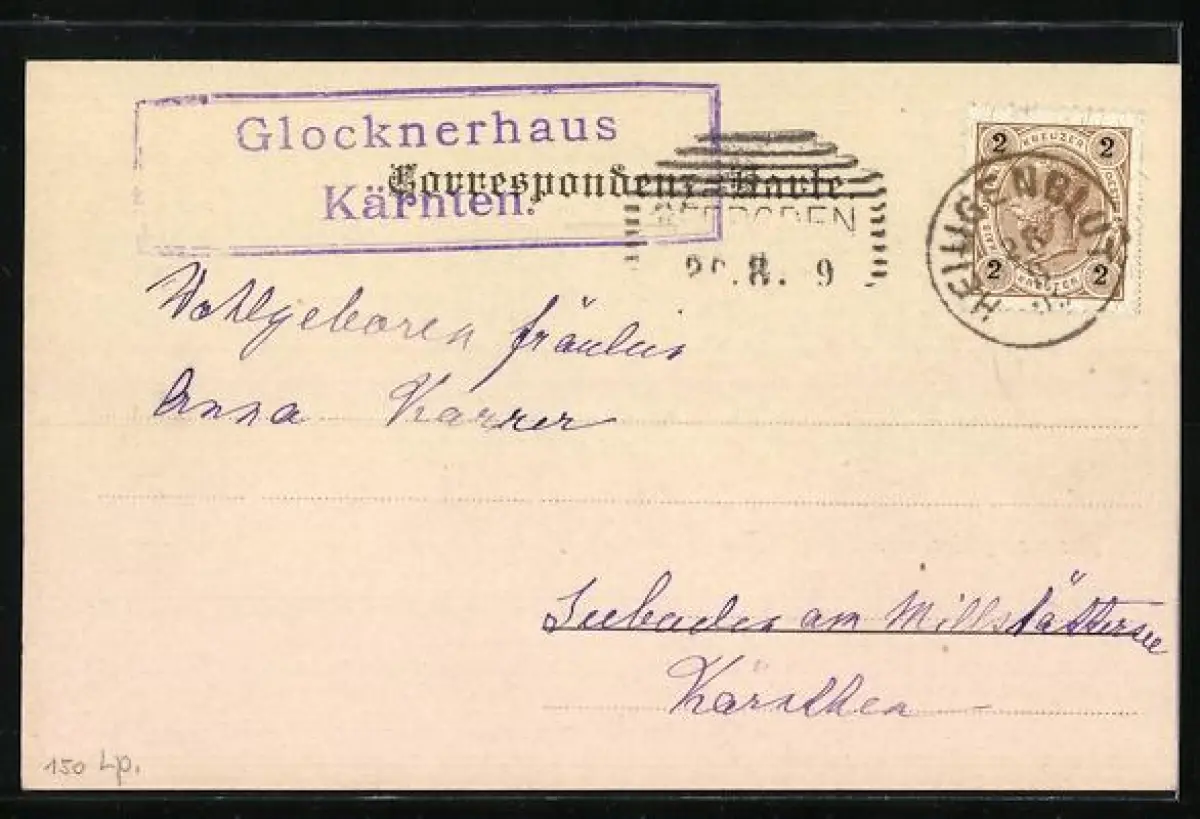 Glocknerhaus
Correspondenz-Karte.
Kärnten.
8. 9
2 KREUZER 2
2 KREUZER 2
HEILIGENBLUT
Wohlgeboren fräulein
Anna Karrer
Seeboden am Millstättersee
Kärnthen
150 Lp.